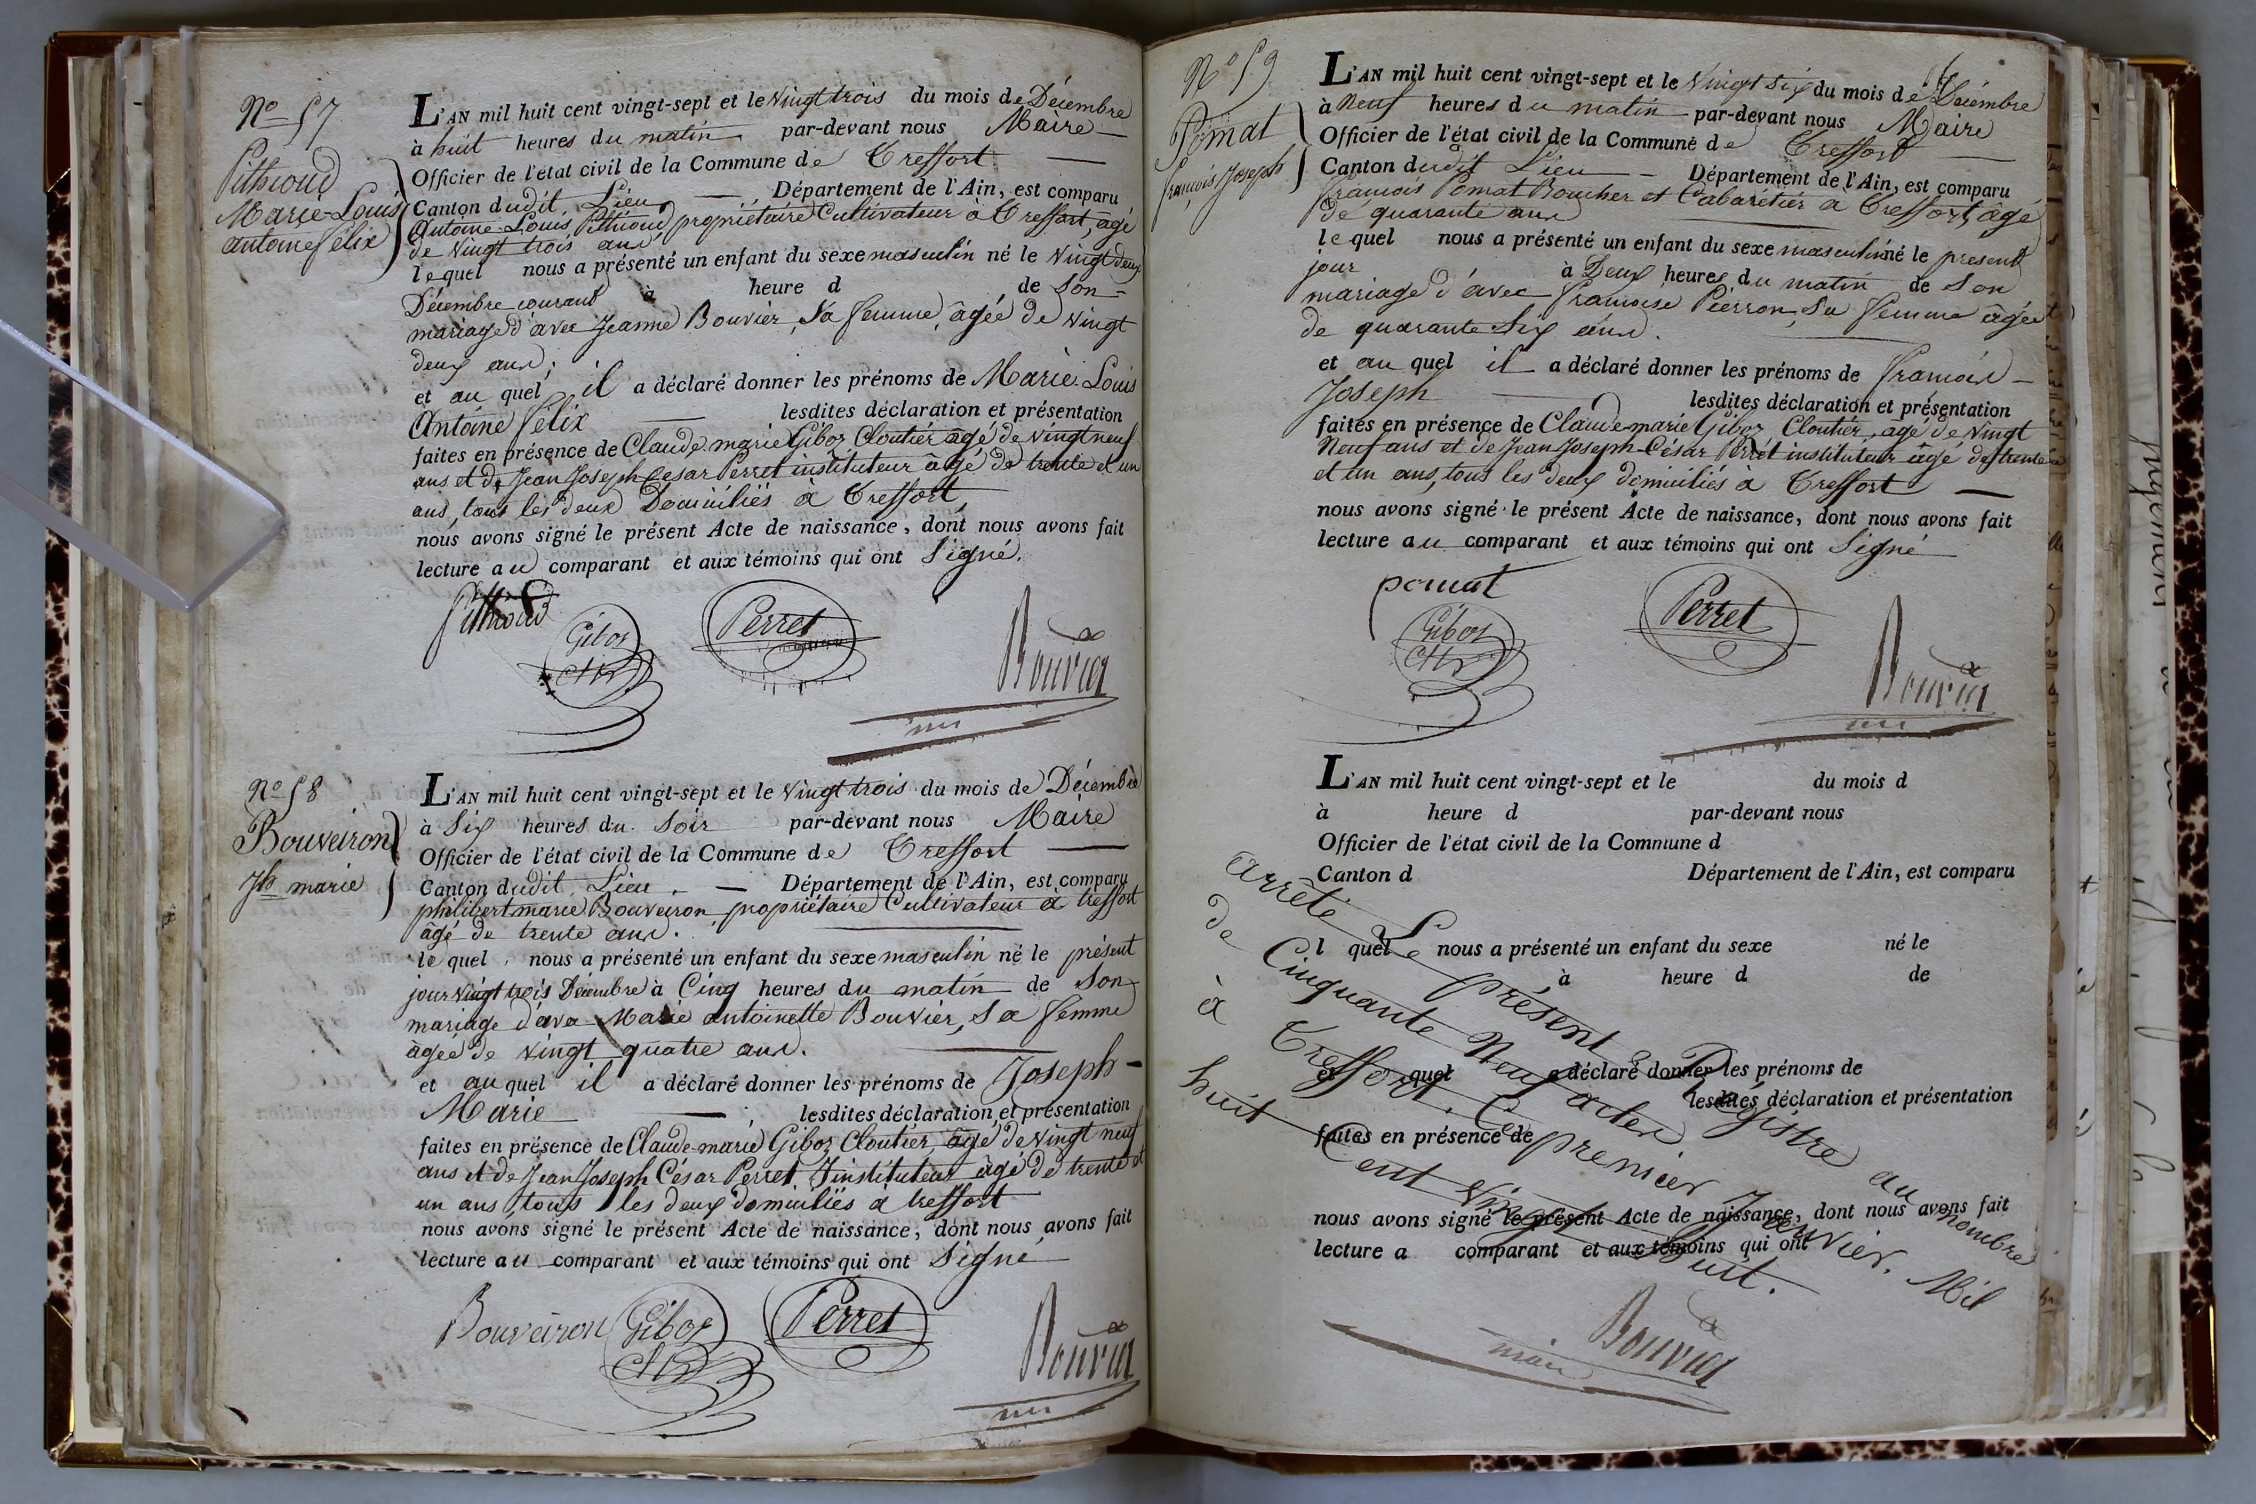 N° 57
Pithioud
Marie Louis
antoine félix
L'AN mil huit cent vingt-sept et le Vingt trois du mois de Décembre
à huit heures du matin par-devant nous Maire
Officier de l'état civil de la Commune de Treffort
Canton dudit Lieu. Département de l'Ain, est comparu
Antoine Louis Pithioud propriétaire Cultivateur à Treffort, agé
de Vingt trois ans
lequel nous a présenté un enfant du sexe masculin né le Vingt deux
Décembre courant à heure d de son
mariage d'avec Jeanne Bouvier, Sa femme, âgée de Vingt
deux ans;
et au quel il a déclaré donner les prénoms de Marie Louis
Antoine félix lesdites déclaration et présentation
faites en présence de Claude marie Giboz Cloutier âgé de vingt neuf
ans et de Jean Joseph Cesar Perret instituteur âgé de trente et un
ans, tous les deux Domiciliés à Treffort,
nous avons signé le présent Acte de naissance, dont nous avons fait
lecture au comparant et aux témoins qui ont Signé.
Pithioud
Giboz
Perret
Bouvier
N° 58
Bouveiron
Jh marie
L'AN mil huit cent vingt-sept et le Vingt trois du mois de Décembre
à Six heures du Soir par-devant nous Maire
Officier de l'état civil de la Commune de Treffort
Canton dudit Lieu. Département de l'Ain, est comparu
philibert marie Bouveiron propriétaire Cultivateur à treffort
âgé de trente ans.
lequel nous a présenté un enfant du sexe masculin né le présent
jour vingt trois Décembre à Cinq heures du matin de Son
mariage d'avec Marie antoinette Bouvier, Sa femme
âgée de vingt quatre ans.
et au quel il a déclaré donner les prénoms de Joseph-
Marie lesdites déclaration et présentation
faites en présence de Claude-marie Giboz Cloutier âgé de vingt neuf
ans et de Jean Joseph César Perret, instituteur âgé de trente et
un ans, tous les deux domiciliés à treffort
nous avons signé le présent Acte de naissance, dont nous avons fait
lecture au comparant et aux témoins qui ont Signé
Bouveiron
Giboz
Perret
Bouvier
N° 59
Pomat
françois Joseph
L'AN mil huit cent vingt-sept et le Vingt Six du mois de Décembre
à Neuf heures du matin par-devant nous Maire
Officier de l'état civil de la Commune de Treffort
Canton dudit Lieu Département de l'Ain, est comparu
françois Pomat Boucher et Cabarétier à Treffort, âgé
de quarante ans
lequel nous a présenté un enfant du sexe masculin né le present
jour à Deux heures du matin de Son
mariage d'avec francoise Pierron, Sa femme âgée
de quarante Six ans.
et au quel il a déclaré donner les prénoms de francois
Joseph lesdites déclaration et présentation
faites en présence de Claude-marie Giboz Cloutier, agé de Vingt
Neuf ans et de Jean Joseph-César Perret instituteur âgé de trente
et un ans, tous les deux domiciliés à Treffort
nous avons signé le présent Acte de naissance, dont nous avons fait
lecture au comparant et aux témoins qui ont Signé
pomat
Giboz
Perret
Bouvier
L'AN mil huit cent vingt-sept et le du mois d
à heure d par-devant nous
Officier de l'état civil de la Commune d
Canton d Département de l'Ain, est comparu
l quel nous a présenté un enfant du sexe né le
à heure d de
et quel a déclaré donner les prénoms de
lesdites déclaration et présentation
faites en présence de
nous avons signé le présent Acte de naissance, dont nous avons fait
lecture a comparant et aux témoins qui ont
Arrêté Le présent Régistre au nombre
de Cinquante Neuf actes
à Treffort, Ce premier Janvier. Mil
huit Cent Vingt Huit.
Bouvier
maire